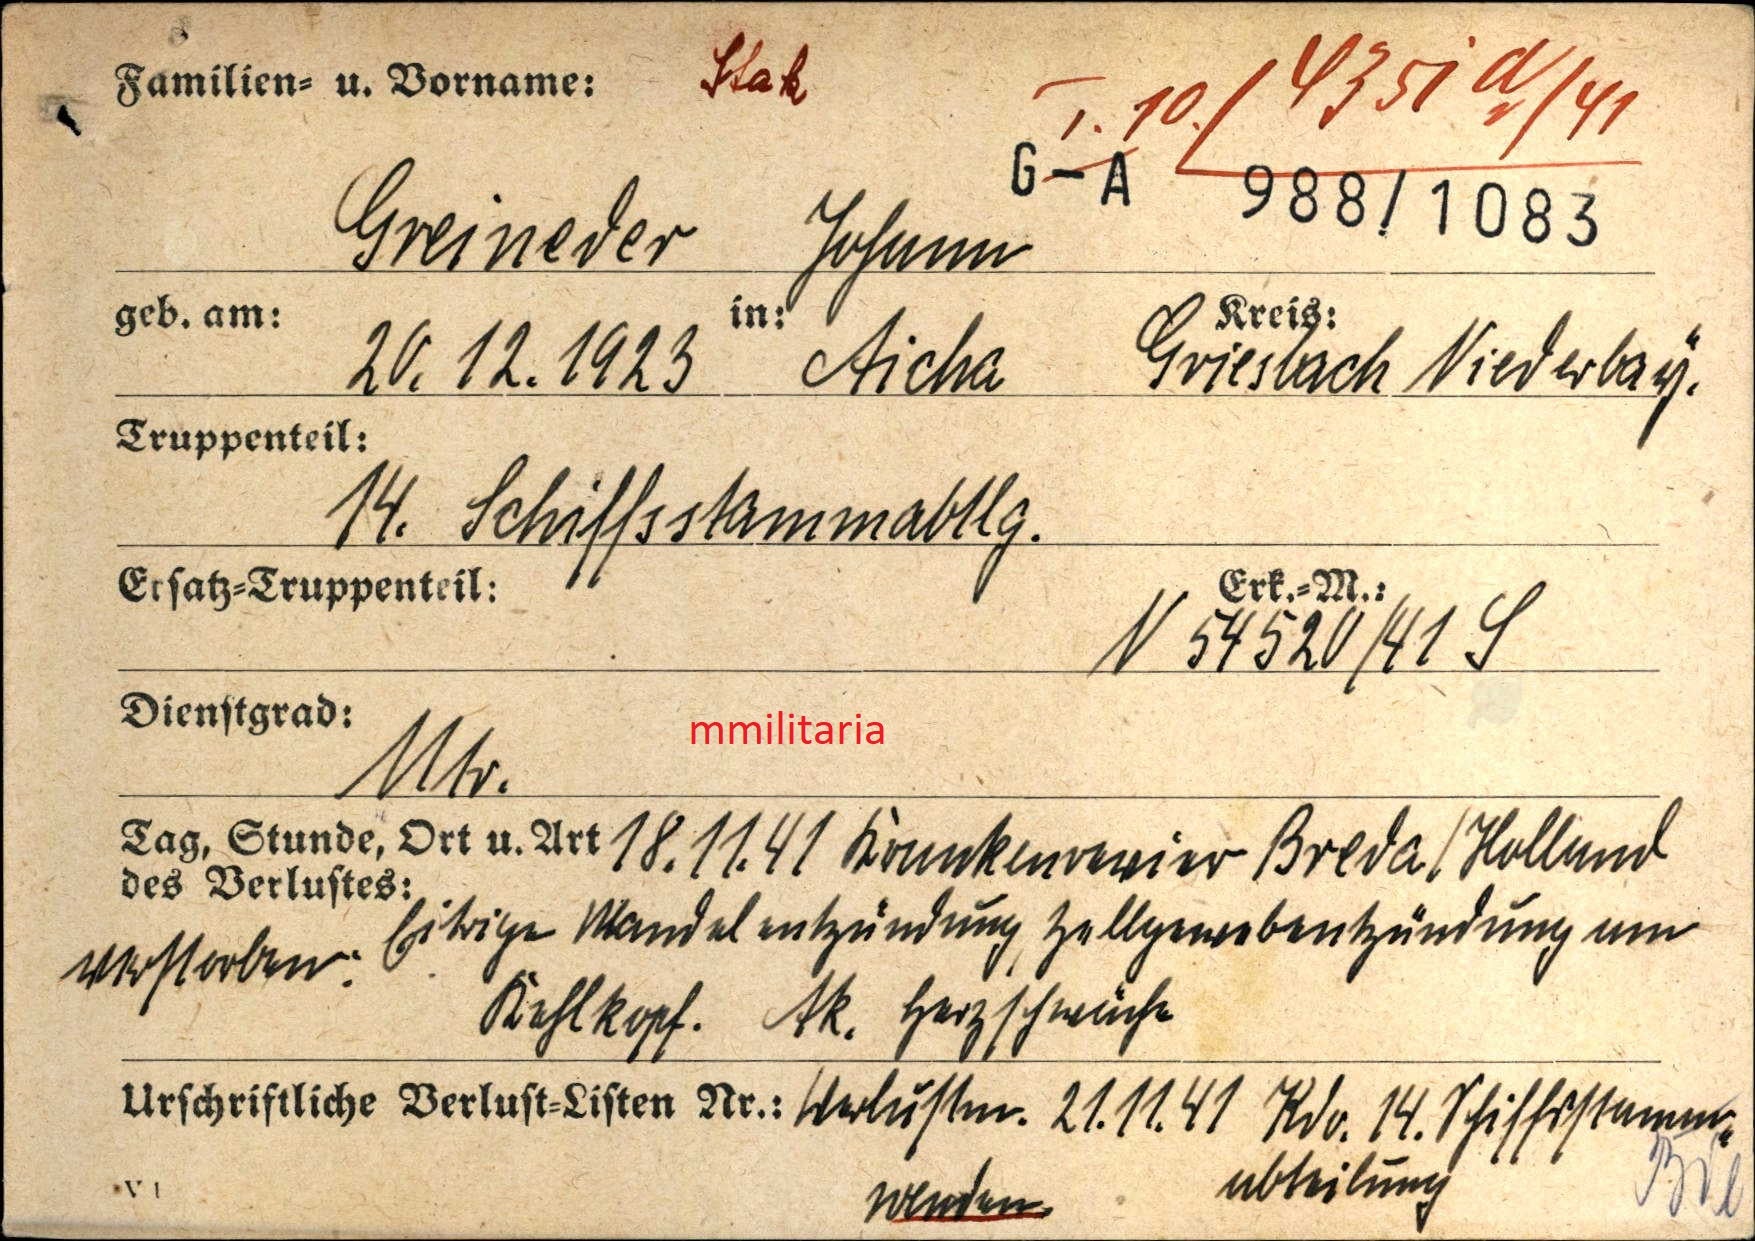 Familien- u. Vorname: Stak I. 10./4351 d/41
G-A 988/1083
Greineder Johann
geb. am: in: Kreis:
20. 12. 1923 Aicha Griesbach Niederbaÿ.
Truppenteil:
14. Schiffsstammabtlg.
Ersatz-Truppenteil: Erk.-M.:
N 54520/41 S
Dienstgrad:
Mtr.
mmilitaria
Tag, Stunde, Ort u. Art 18.11.41 Krankenrevier Breda/Holland
des Verlustes:
verstorben: Eitrige Mandelentzündung, Zellgewebentzündung am
Kehlkopf. Ak. Herzschwäche
Urschriftliche Verlust-Listen Nr.: Verlustm. 21.11.41 Kdo. 14. Schiffsstamm-
abteilung
wenden.
V 1